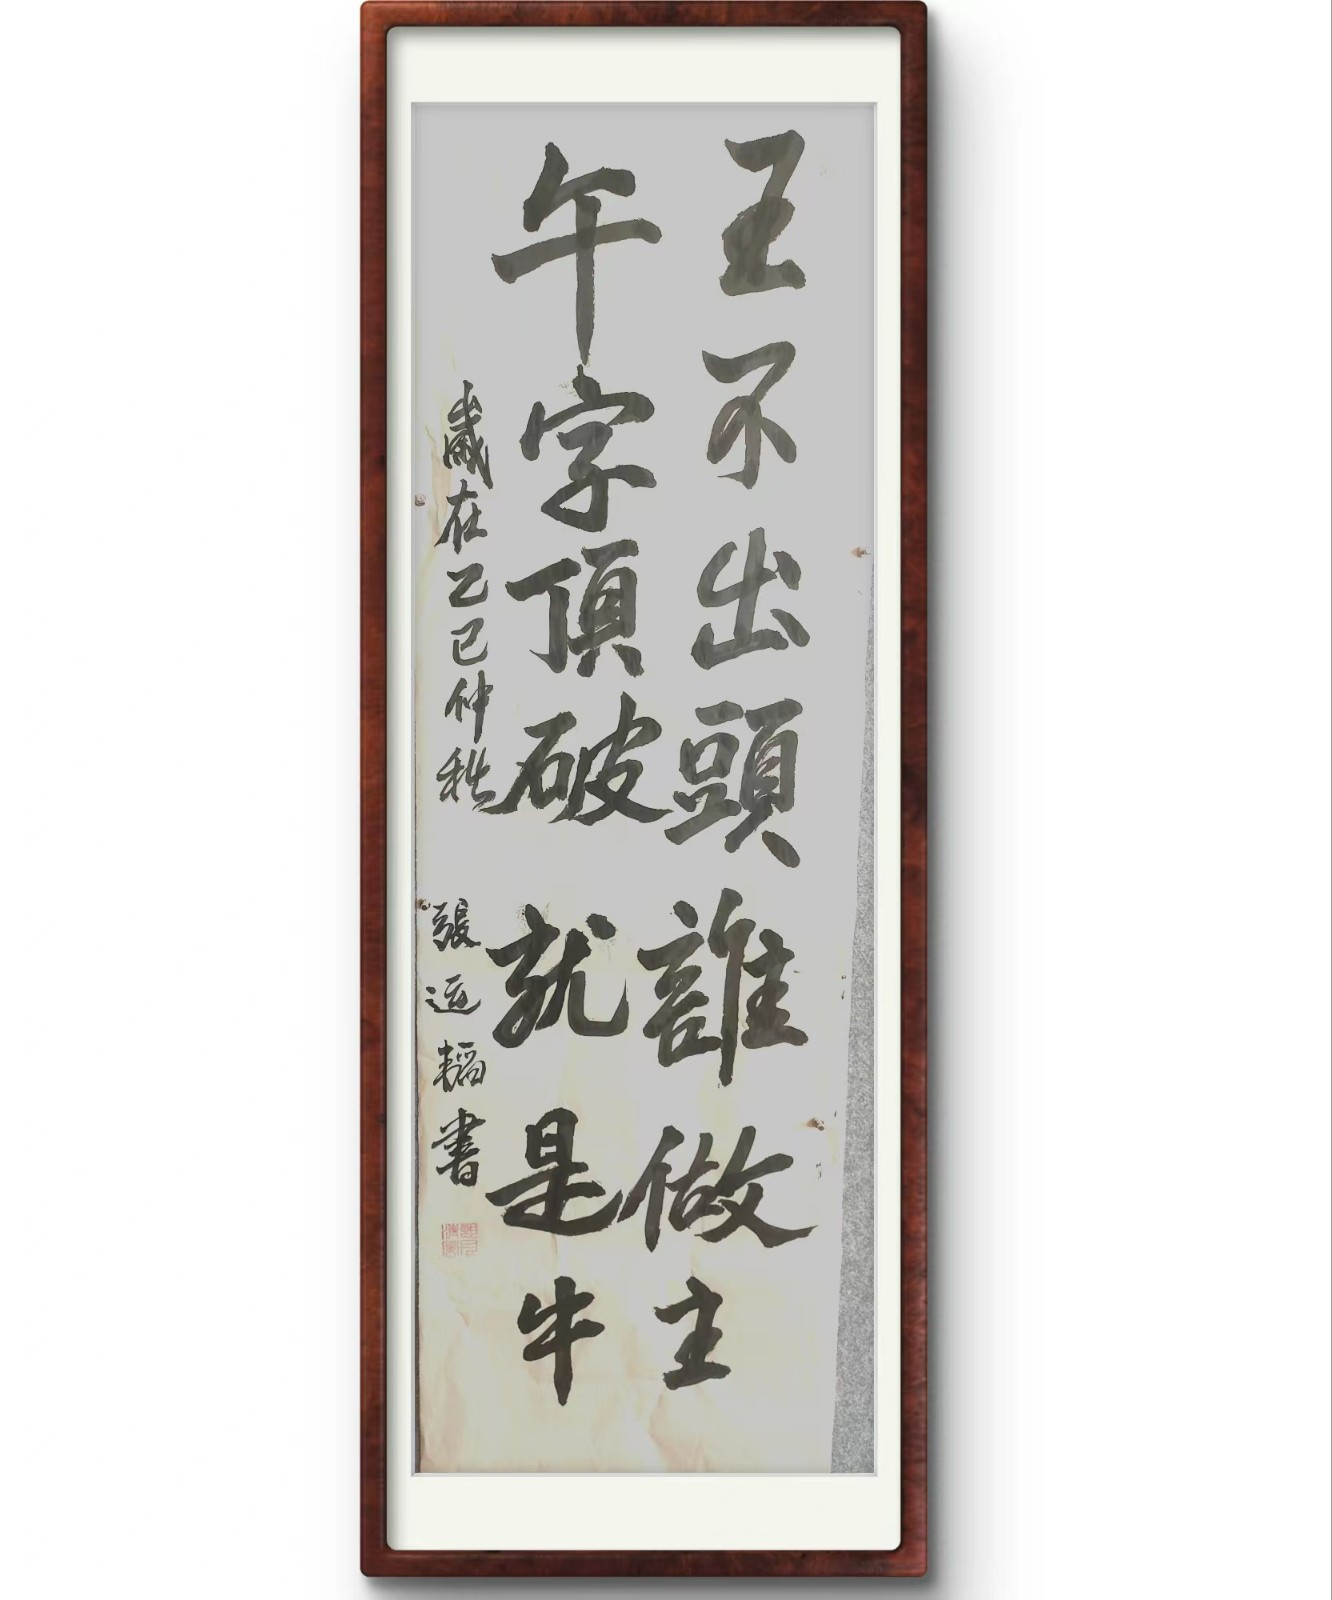 王不出頭誰做主
午字頂破就是牛
歲在乙巳仲秋 張運韜書